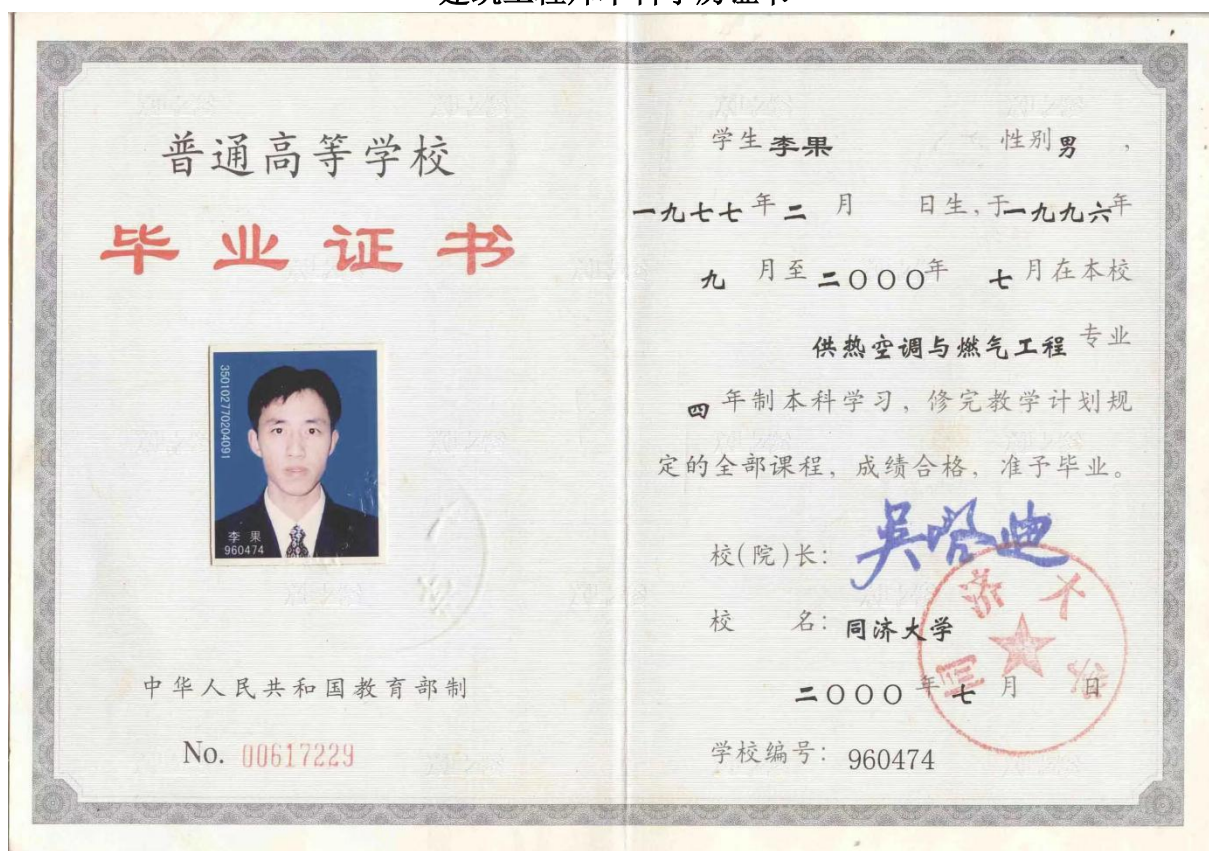 普通高等学校
毕业证书
350102770204091
李 果
960474
中华人民共和国教育部制
No. 00617229
学生 李果 性别 男 ,
一九七七 年 二 月 日生, 于 一九九六 年
九 月至 二〇〇〇 年 七 月在本校
供热空调与燃气工程 专业
四 年制本科学习, 修完教学计划规
定的全部课程, 成绩合格, 准予毕业。
校(院)长: 吴启迪
校 名: 同济大学
同济大学
二〇〇〇 年 七 月 日
学校编号: 960474